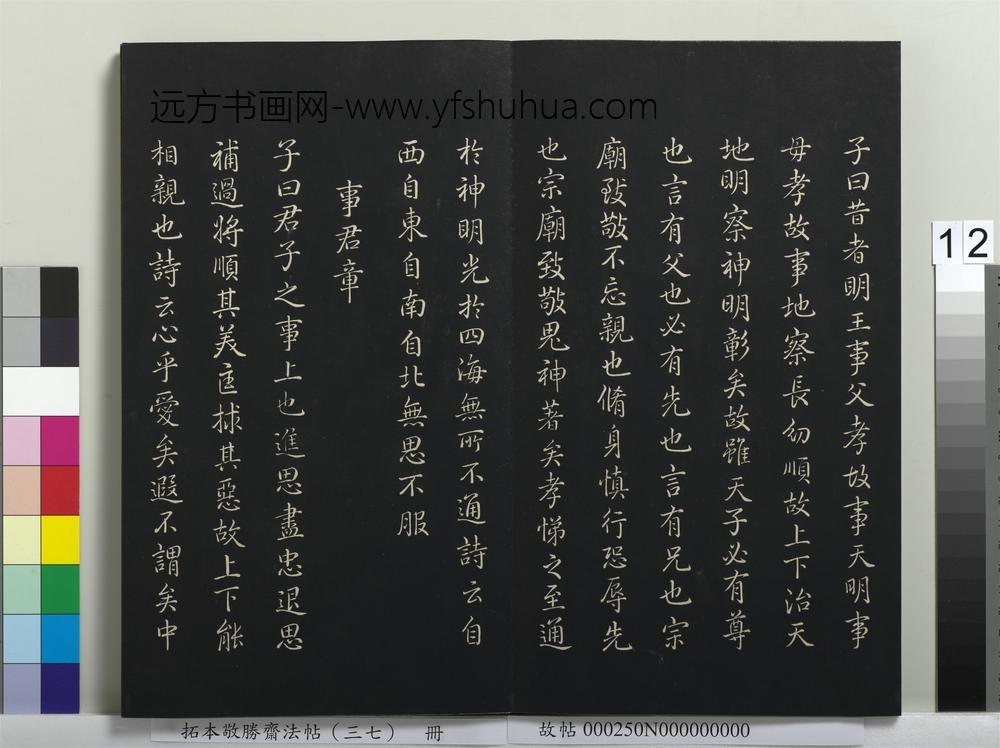 远方书画网-www.yfshuhua.com
子曰昔者明王事父孝故事天明事
母孝故事地察長幼順故上下治天
地明察神明彰矣故雖天子必有尊
也言有父也必有先也言有兄也宗
廟致敬不忘親也脩身慎行恐辱先
也宗廟致敬鬼神著矣孝悌之至通
於神明光於四海無所不通詩云自
西自東自南自北無思不服
事君章
子曰君子之事上也進思盡忠退思
補過將順其美匡捄其惡故上下能
相親也詩云心乎愛矣遐不謂矣中
12
拓本敬勝齋法帖(三七) 冊
故帖 000250N000000000